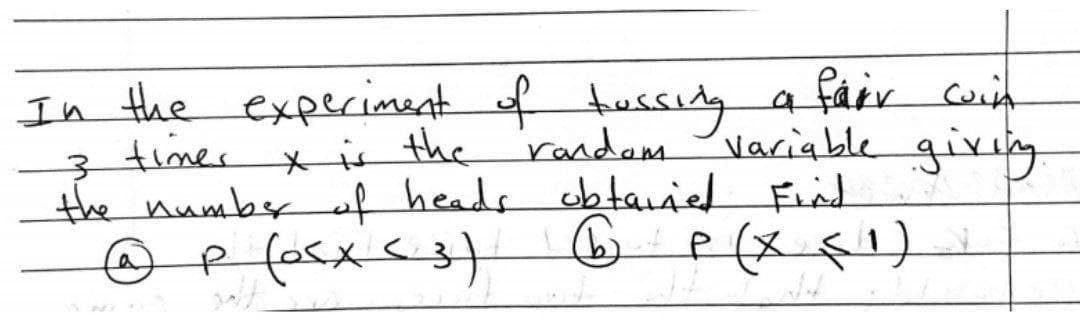 In the experiment of tossing a fair coin
3 times x is the random variable giving
the number of heads obtained Find
(a) P (0<x<3) (b) P (x ≤ 1)